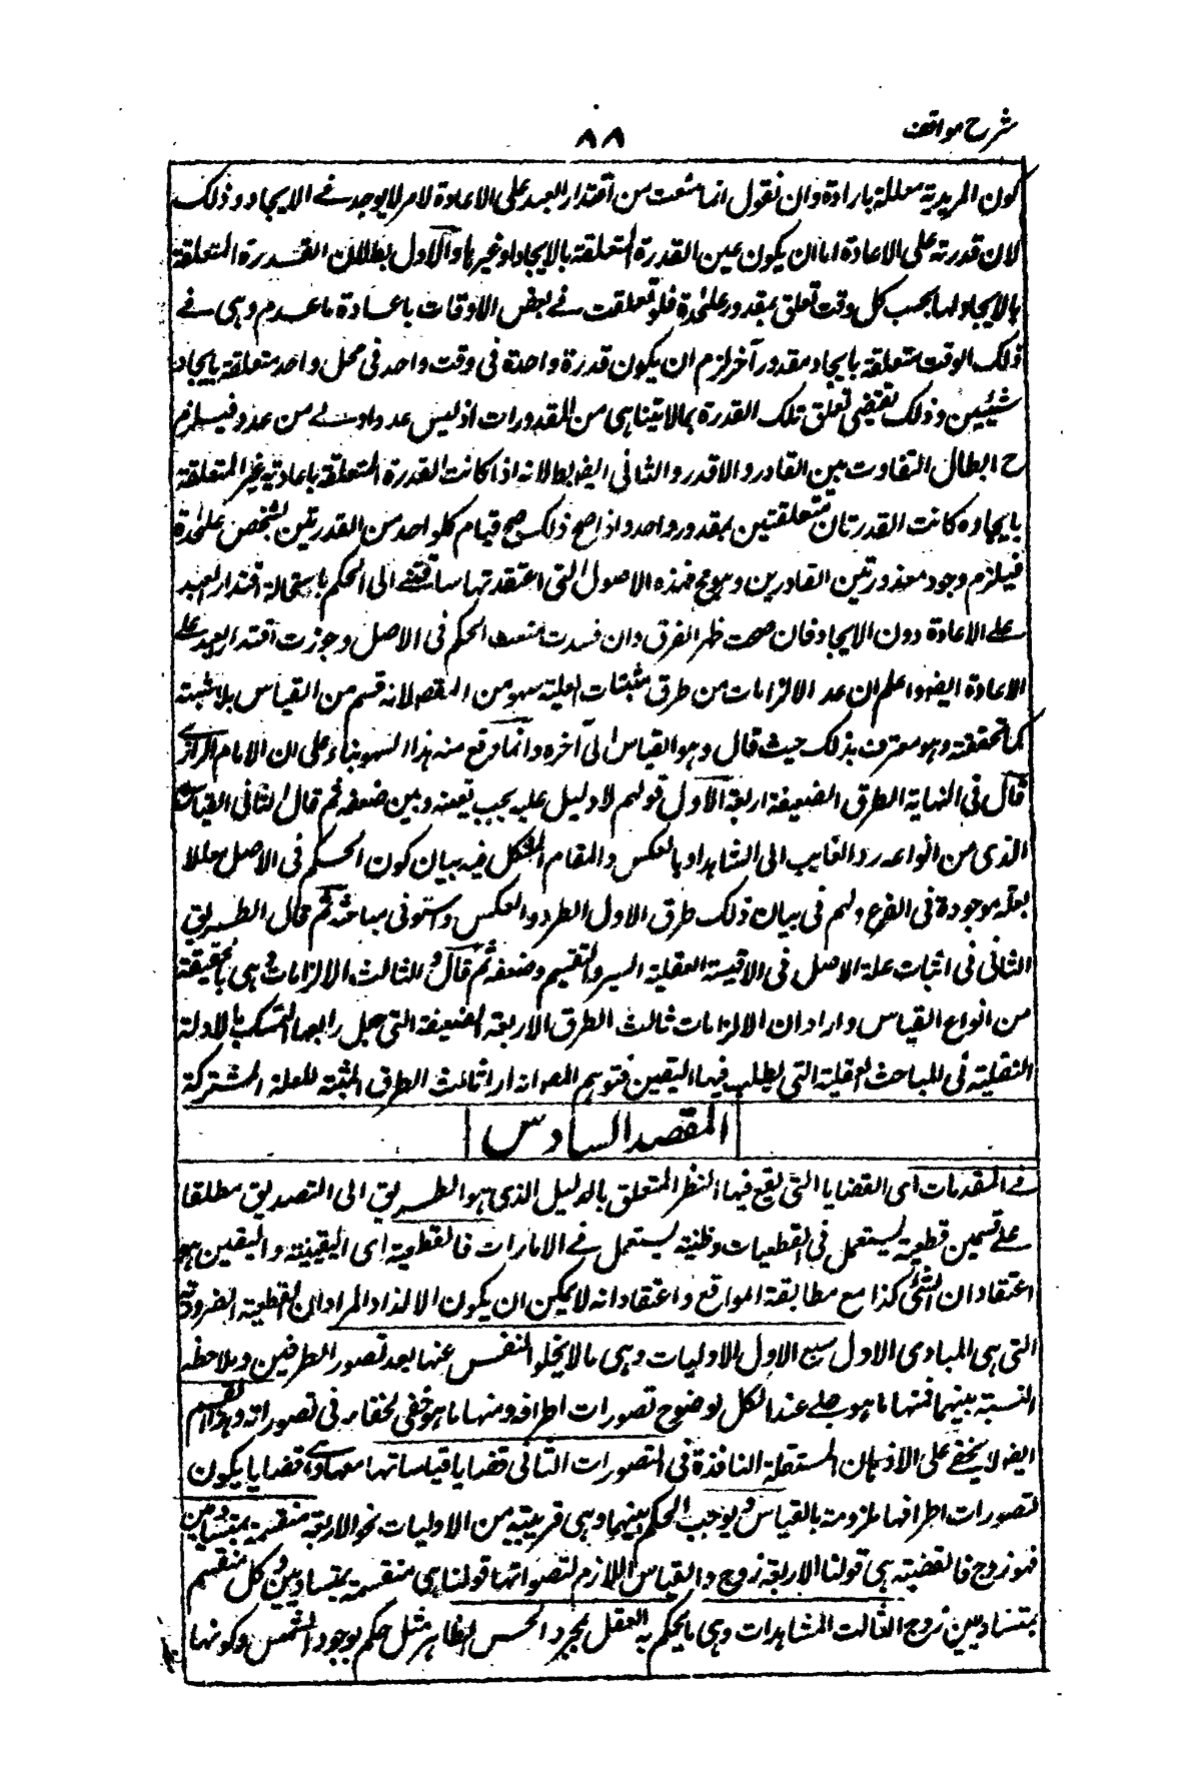 شرح مواقف
٨٨
كون المريدية معللة بارادة وان نقول انما منعت من اقتدار العبد على الاعادة لامر لا يوجد في الايجاد وذلك
لان قدرته على الاعادة اما ان يكون عين القدرة المتعلقة بالايجاد او غيرها والاول بطلان القدرة المتعلقة
بالايجاد لها بحسب كل وقت تعلق بمقدور علحدة فلو تعلقت في بعض الاوقات باعادة ما عدم وهي في
ذلك الوقت متعلقة بايجاد مقدور آخر لزم ان يكون قدرة واحدة في وقت واحد في محل واحد متعلقة بايجاد
شيئين وذلك تقتضي تعلق تلك القدرة بمالا يتناهى من المقدورات اذ ليس عدد اولى من عدد فيلزم
ح ابطال التفاوت بين القادر والاقدر والثاني ايض بط لانه اذا كانت القدرة المتعلقة باعادته غير المتعلقة
بايجاده كانت القدرتان متعلقتين بمقدور واحد واذا صح ذلك صح قيام كل واحد من القدرتين بشخص علحدة
فيلزم وجود مقدور بين القادرين وهو مح فهذه الاصول التي اعتقدتها ساقتني الى الحكم باستحالة اقتدار العبد
على الاعادة دون الايجاد فان صحت ظهر الفرق وان فسدت منعت الحكم في الاصل وجوزت اقتدار العبد على
الاعادة ايض واعلم ان عد الالزامات من طرق مثبتات العلية سهو من المص لانه قسم من القياس بلا شبهة
كما تحققته وهو معترف بذلك حيث قال وهو القياس الى آخره وانما وقع منه هذا السهو بناء على ان الامام الرازي
قال في النهاية الطرق الضعيفة اربعة الاول قولهم لا دليل عليه يجب نفيه وبين ضعفه ثم قال الثاني القياس
الذي من انواعه رد الغايب الى الشاهد او بالعكس والمقام المشكل فيه بيان كون الحكم في الاصل معللا
بعلة موجودة في الفرع ولهم في بيان ذلك طرق الاول الطرد والعكس واستوفى مباحثه ثم قال الطريق
الثاني في اثبات علة الاصل في الاقيسة العقلية السبر والتقسيم وضعفه ثم قال والثالث الالزامات وهي بالحقيقة
من انواع القياس واراد ان الالزامات ثالث الطرق الاربعة الضعيفة التي جعل رابعها التمسك بالادلة
النقلية في المباحث العقلية التي يطلب فيها اليقين فتوهم المص انه اراد ثالث الطرق المثبتة للعلة المشتركة
المقصد السادس
في المقدمات اى القضايا التى يقع فيها النظر المتعلق بالدليل الذى هو الطريق الى التصديق مطلقا
على قسمين قطعية يستعمل في القطعيات وظنية يستعمل في الامارات فالقطعية اى اليقينية واليقين هو
اعتقاد ان الشئ كذا مع مطابقة الواقع واعتقاد انه لا يمكن ان يكون الا كذا والمراد ان القطعية الضرورية
التي هي المبادى الاول سبع الاول الاوليات وهي مالا يخلو النفس عنها بعد تصور الطرفين وملاحظة
النسبة بينهما فمنها ما هو جلى عند الكل لوضوح تصورات اطرافه ومنها ما هو خفي لخفاء في تصوراته وهذا القسم
ايض لا يخفى على الاذهان المشتعلة النافذة في التصورات الثاني قضايا قياساتها معها وهي قضايا يكون
تصورات اطرافها ملزومة بالقياس يوجب الحكم بينهما وهي قريبة من الاوليات نحو الاربعة منقسمة بمتساويين
فهو زوج فالقضية هي قولنا الاربعة زوج والقياس اللازم لتصوراتها قولنا هي منقسمة بمتساويين وكل منقسم
بمتساويين زوج الثالث المشاهدات وهي ما يحكم به العقل بمجرد الحس الظاهر مثل حكم بوجود الشمس وكونها